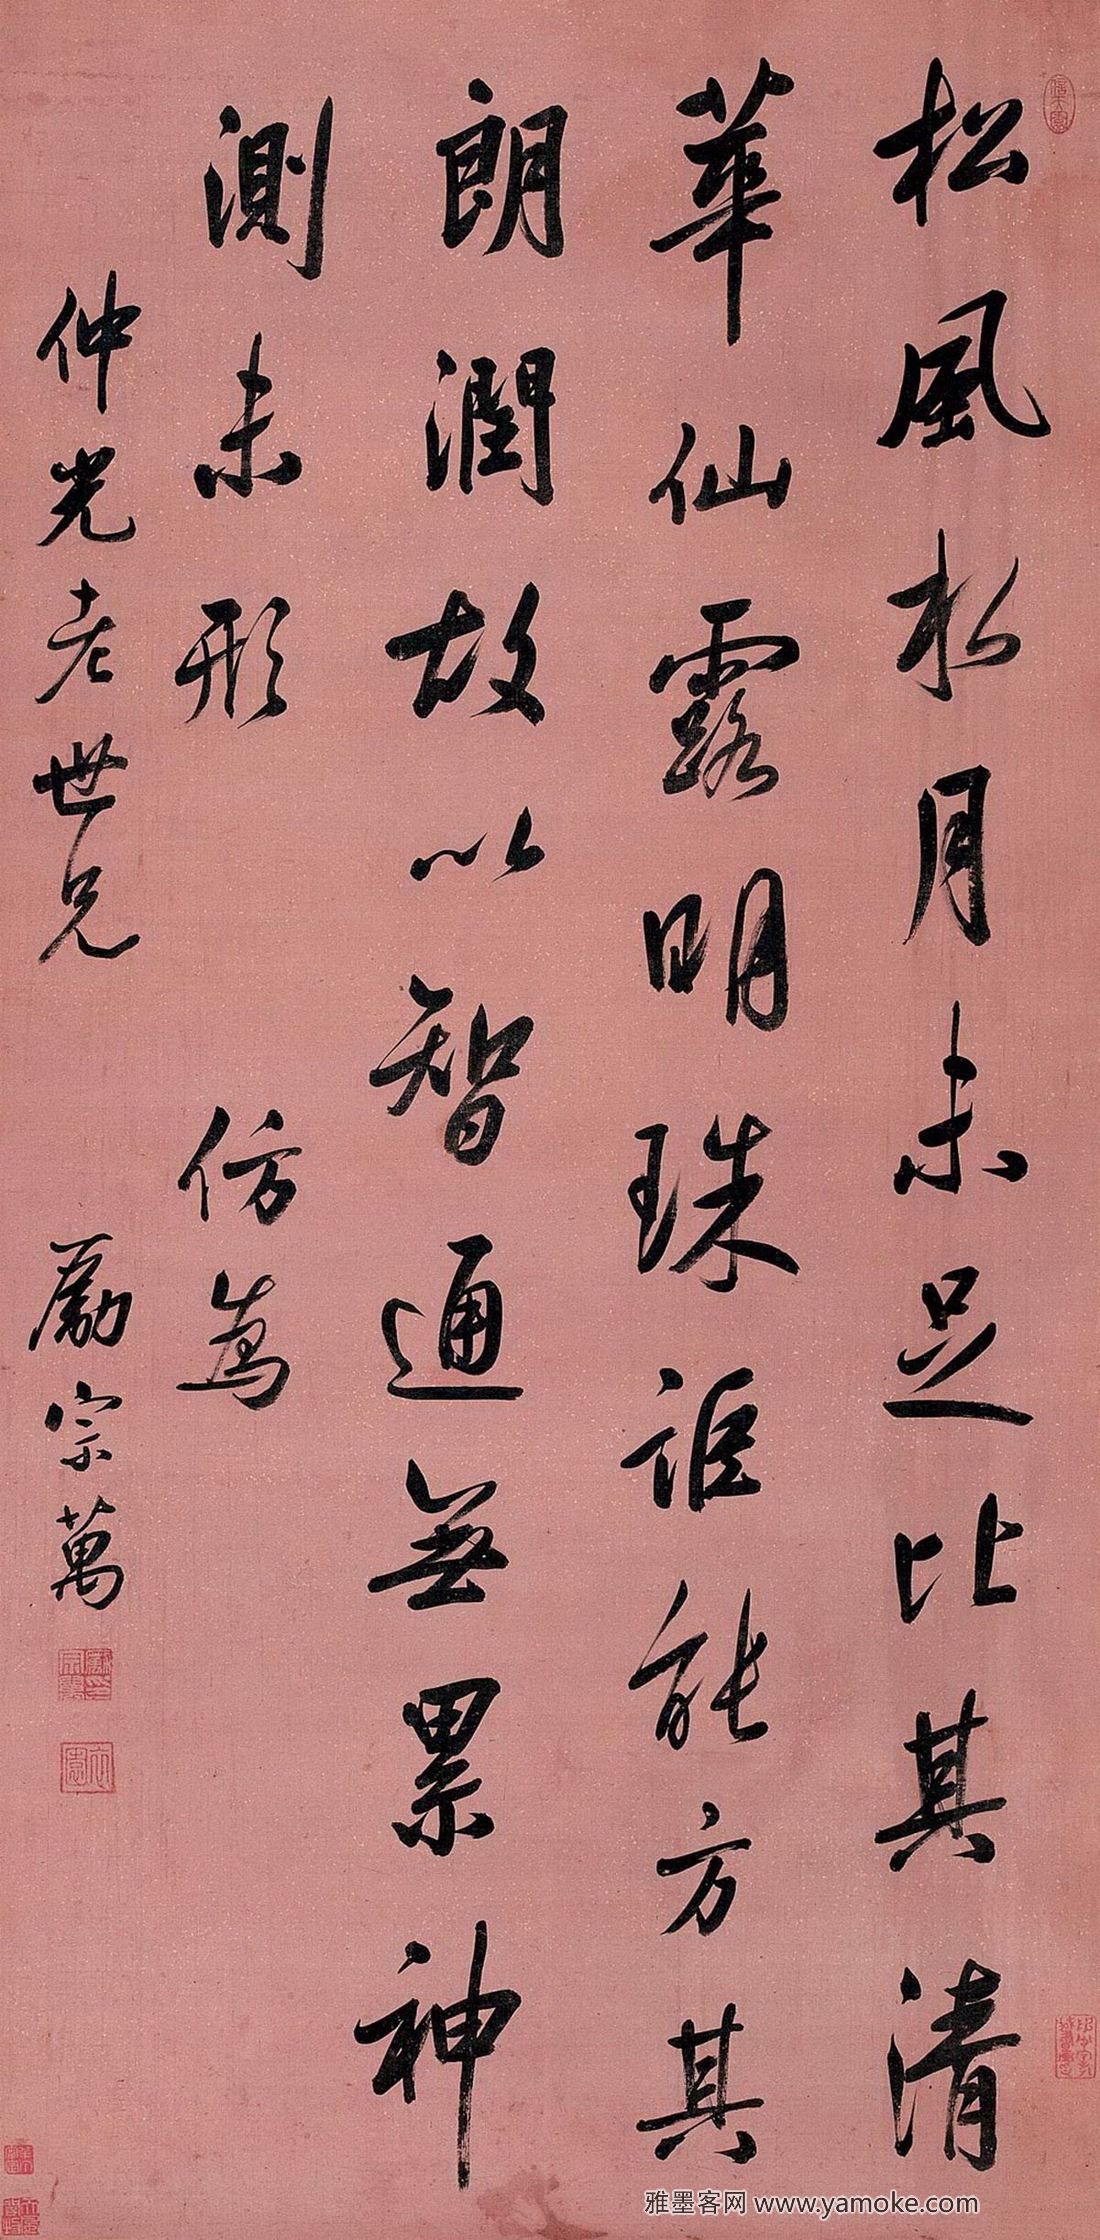 松風水月未足比其清
華仙露明珠詎能方其
朗潤故以智通無累神
測未形 仿為
仲光老世兄 勵宗萬
雅墨客网 www.yamoke.com